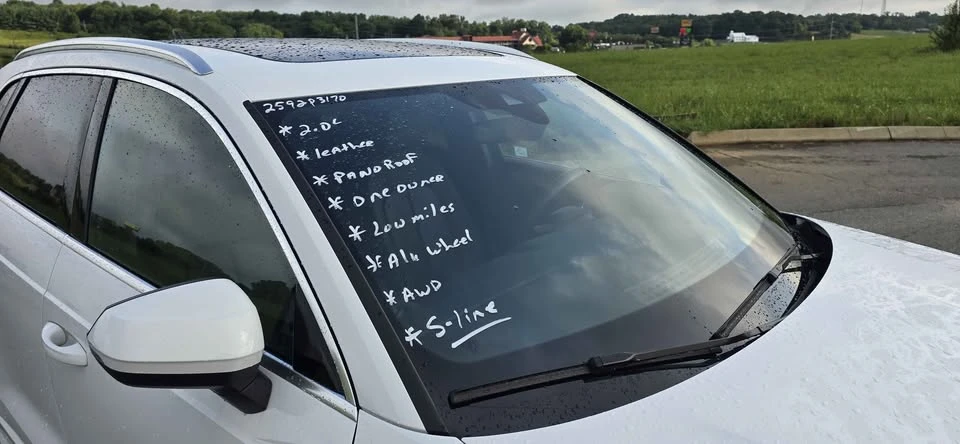 2592P3170
* 2.0L
* leather
* PANO ROOF
* One Owner
* Low miles
* Alu wheel
* AWD
* S-line